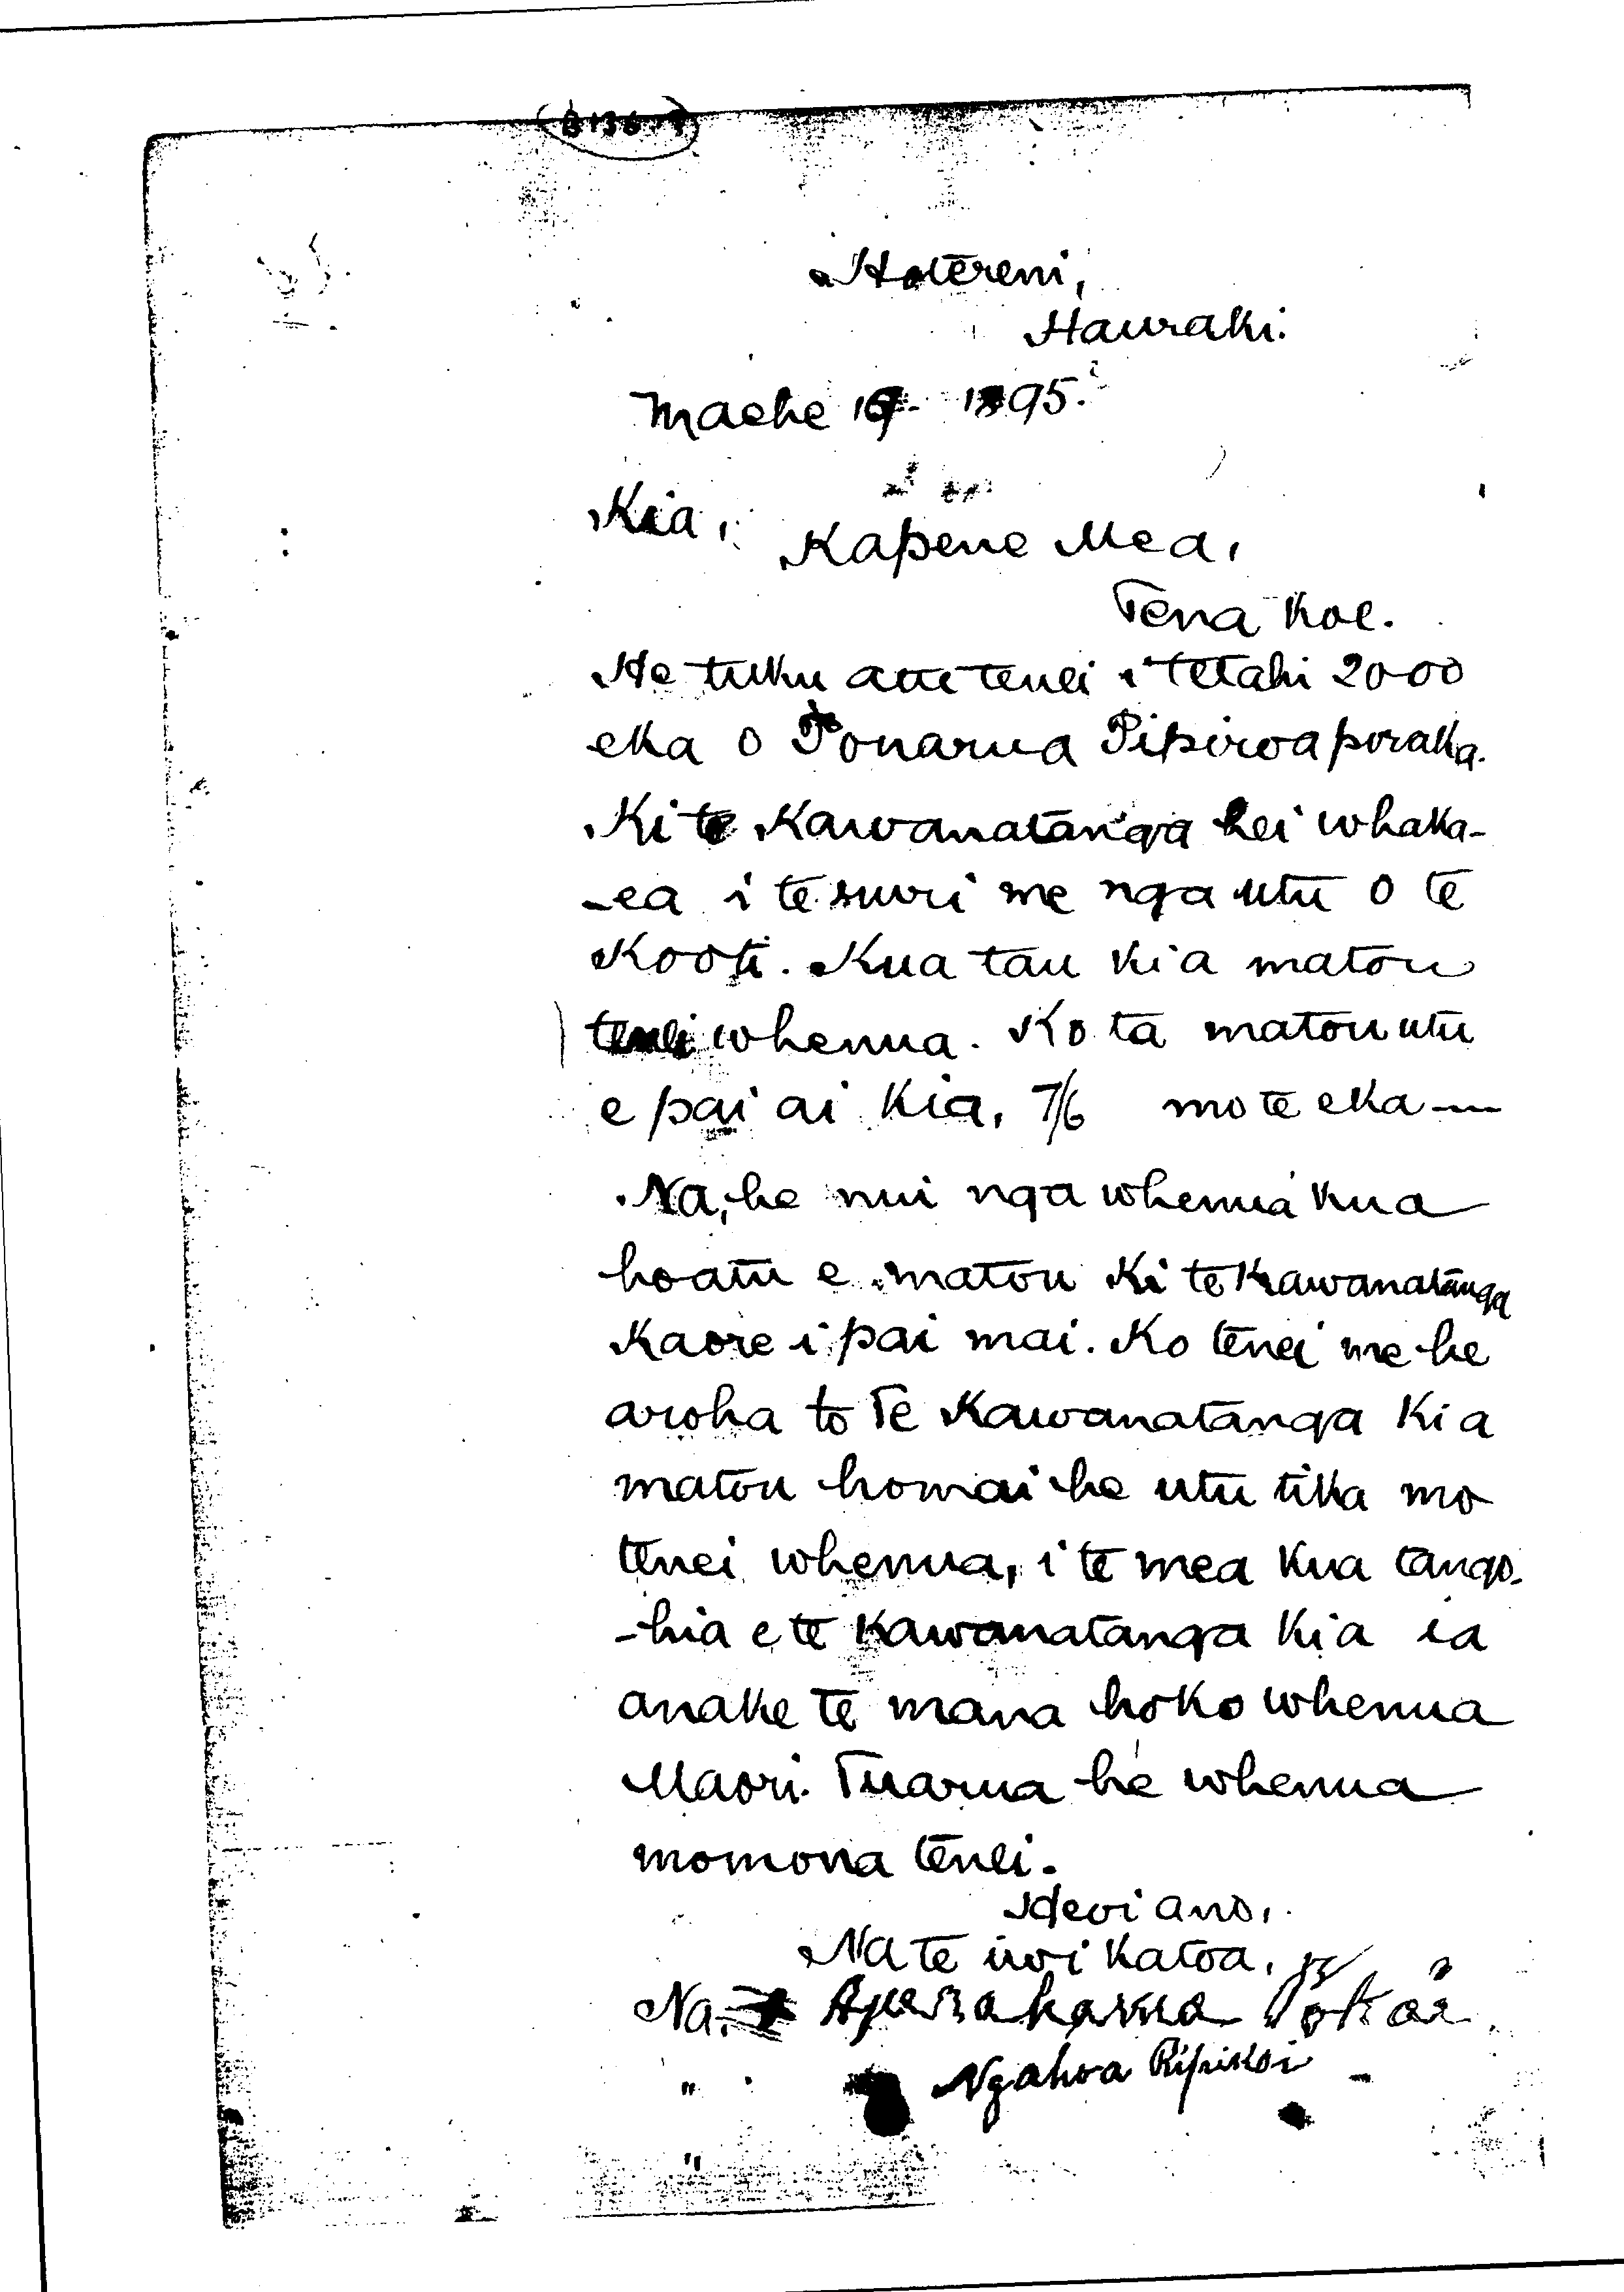 Hotereni,
Hauraki.
Maehe 19 - 1895.
Kia,
Kapene Mea,
Tena koe.
He tuku atu tenei i tetahi 2000
eka o Tonarua Pipiroa poraka.
Ki te Kawanatanga hei whaka-
-ea i te ruuri me nga utu o te
Kooti. Kua tau kia matou
tenei whenua. Ko ta matou utu
e pai ai kia, 7/6 mo te eka —
Na, he nui nga whenua kua
hoatu e matou ki te Kawanatanga
Kaore i pai mai. Ko tenei me he
aroha to Te Kawanatanga kia
matou homai he utu tika mo
tenei whenua, i te mea kua tango-
-hia e te Kawanatanga kia ia
anake te mana hoko whenua
Maori. Tuarua he whenua
momona tenei.
Heoi ano,
Na te iwi katoa,
Na, Aperahama Pokai
" Ngahoa Ripikoi
"